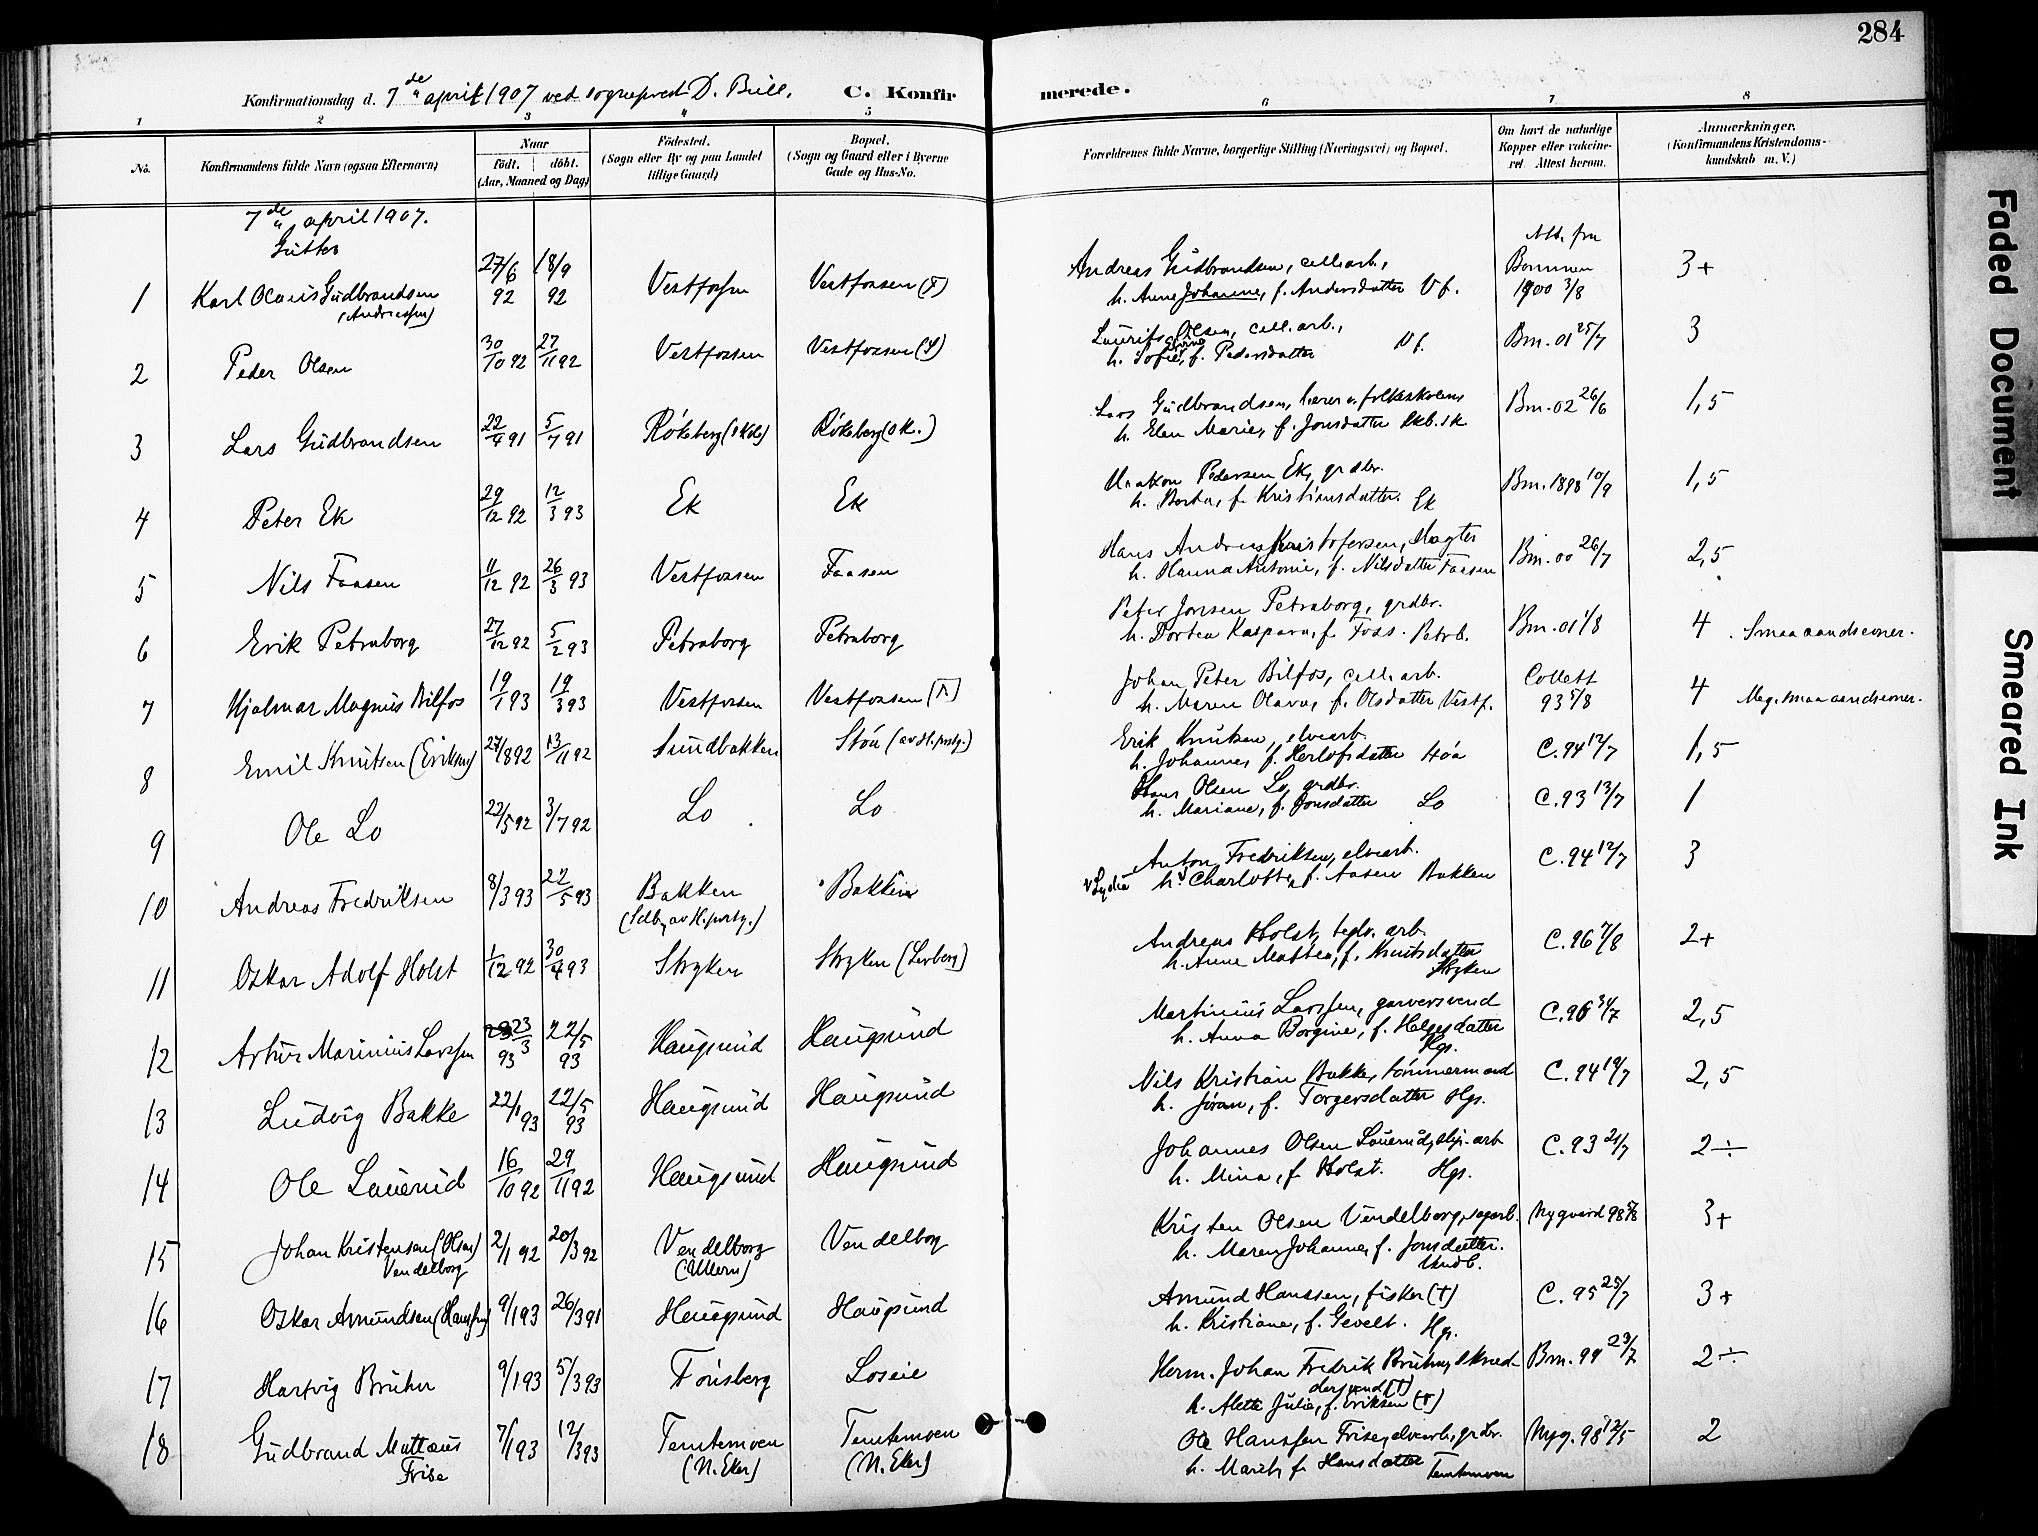 284
Konfirmationsdag d. 7de april 1907 ved sogneprest D. Bull.
C. Konfirmerede.
1 2 3 4 5 6 7 8
No.
Konfirmandens fulde Navn (ogsaa Efternavn)
Naar
födt. döbt.
(Aar, Maaned og Dag)
Födested.
(Sogn eller By og paa Landet
tillige Gaard)
Bopæl.
(Sogn og Gaard eller i Byerne
Gade og Hus-No.
Forældrenes fulde Navne, borgerlige Stilling (Næringsvei) og Bopæl.
Om havt de naturlige
Kopper eller vakcine-
ret. Attest herom.
Anmærkninger.
(Konfirmandens Kristendoms-
kundskab m. V.)
7de april 1907.
Gutter
1 Karl Olaus Gudbrandsen (Andreassen) 27/6 92 18/9 92 Vestfossen Vestfossen (F) Andreas Gudbrandsen, cell.arb., Att. fra Bommen 1900 3/8 3+
h. Anne Johanne, f. Andersdatter Vf.
2 Peder Olsen 30/10 92 27/11 92 Vestfossen Vestfossen (S) Laurits Olsen, cell.arb., Bm. 01 25/7 3
h. Sofie, f. Pedersdatter Vf.
3 Lars Gudbrandsen 22/4 91 5/7 91 Røkeberg (Skde) Røkeberg (sk.) Lars Gudbrandsen, lærer v. folkeskolen Bm. 02 26/6 1,5
h. Elen Marie, f. Jonsdatter
4 Peter Ek 29/12 92 12/3 93 Ek Ek Haakon Pedersen Ek, grdbr. Bm. 1898 10/9 1,5
h. Berta, f. Kristiansdatter. Ek
5 Nils Faasen 11/12 92 26/3 93 Vestfossen Faasen Hans Andreas Kristofersen, Slagter Bm. 00 26/7 2,5
h. Hanna Antonie, f. Nilsdatter Faasen
6 Erik Petraborg 27/12 92 5/2 93 Petraborg Petraborg Peter Jonsen Petraborg, grdbr. Bm. 01 1/8 4 Smaa aandsevner.
h. Dortea Kaspara, f. Foss. Petrb.
7 Hjalmar Magnus Bilfos 19/1 93 19/3 93 Vestfossen Vestfossen (F) Johan Peter Bilfos, cell.arb. Collett 93 5/8 4 Meg. smaa aandsevner.
h. Maren Olava, f. Olsdatter Vestf.
8 Emil Knutsen (Eriksen) 27/8 92 13/11 92 Sundbakken Stöa (av H.prstg.) Erik Knutsen, elvearb. C. 94 12/7 1,5
h. Johanne, f. Herlofsdatter Stöa
9 Ole Lo 22/5 92 3/7 92 Lo Lo Hans Olsen Lo, grdbr. C. 93 13/7 1
h. Mariane, f. Jonsdatter Lo
10 Andreas Fredriksen 8/3 93 22/5 93 Bakken (Sdb, av H.prstg.) Bakken Anton Fredriksen, elvearb. C. 94 12/7 3
Lydia h. Charlotte, f. Aasen Bakken
11 Oskar Adolf Holst 1/12 92 30/4 93 Stryken Stryken (Lerberg) Andreas Holst, teglv. arb. C. 96 7/8 2+
h. Anne Mathea, f. Knutsdatter Stryken
12 Artur Marinius Larssen 23/3 93 22/5 93 Haugsund Haugsund Martinius Larssen, garversvend C. 96 31/7 2,5
h. Anna Borgine, f. Helgesdatter Hgs.
13 Ludvig Bakke 22/1 93 22/5 93 Haugsund Haugsund Nils Kristian Bakke, tømmermand C. 94 19/7 2,5
h. Jøran, f. Torgersdatter Hgs.
14 Ole Lauerud 16/10 92 29/11 92 Haugsund Haugsund Johannes Olsen Lauerud, slip. arb C. 93 21/7 2÷
h. Mina, f. Holst. Hgs.
15 Johan Kristensen (Olsen) Vendelborg 2/1 92 20/3 92 Vendelborg (Ullern) Vendelborg Kristen Olsen Vendelborg, sagarb. Nygaard 98 5/8 3+
h. Maren Johanne, f. Jonsdatter. Vndb.
16 Oskar Amundsen (Hanssen) 9/1 93 26/3 91 Haugsund Haugsund Amund Hanssen, fisker (†) C. 95 25/7 3+
h. Kristiane, f. Gevelt. Hgs.
17 Hartvig Bruhn 9/1 93 5/3 93 Tønsberg Loseie Herm. Johan Fredrik Bruhn, skræd- Bm. 99 23/7 2÷
dersvend (†)
h. Alette Julie, f. Eriksen (†)
18 Gudbrand Mattæus Frise 7/1 93 12/3 93 Temtemoen (N. Eker) Temtemoen (N. Eker) Ole Hanssen Frise, elvearb., grdbr. Nyg. 98 12/5 2
h. Marit, f. Hansdatter Temtemoen
Faded Document
Smeared Ink